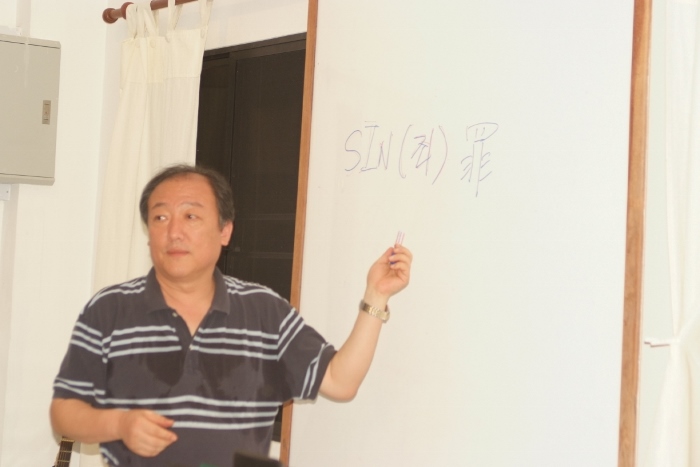 SIN (죄) 罪